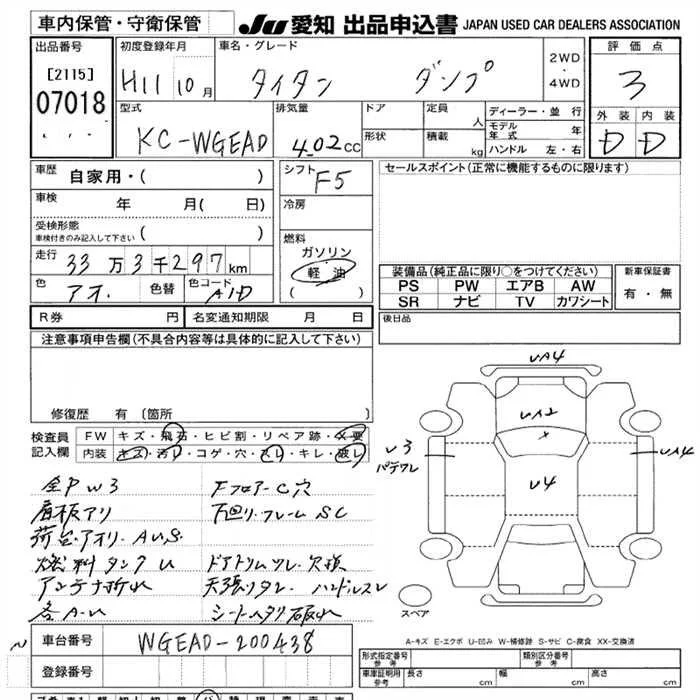 車内保管・守衛保管
JU 愛知 出品申込書 JAPAN USED CAR DEALERS ASSOCIATION
出品番号
[2115]
07018
初度登録年月
H11 10月
車名・グレード
タイタン ダンプ
2WD
・
4WD
評価点
3
外装 内装
D D
型式
KC-WGEAD
排気量
4.02cc
ドア
形状
定員 人
積載 kg
ディーラー・並行
モデル年式 年
ハンドル 左・右
車歴 自家用・( )
車検 年 月( 日)
受検形態
車検付きのみ記入して下さい ( )
走行 33万3千297km
色 アオ. 色替 色コード A1D
シフト F5
冷房
燃料
ガソリン
軽油
( )
セールスポイント(正常に機能するものに限ります)
装備品(純正品に限り○をつけてください)
PS PW エアB AW
SR ナビ TV カワシート
新車保証書
有・無
R券 円 名変通知期限 月 日
後日品
注意事項申告欄(不具合内容等は具体的に記入して下さい)
修復歴 有 〔箇所 〕
検査員
記入欄
FW キズ・飛石・ヒビ割・リペア跡・X要
内装 キズ・汚レ・コゲ・穴・スレ・キレ・破レ
全PW3 Fフロアー C穴
看板アリ 下回リ.フレーム SC
荷台.アオリ.AUS
燃料タンクU ドアトリムワレ.欠損
アンテナ折れ 天張リタレ. ハンドルスレ
各A-U シートヘタリ破れ
UA4
UA2
X
U3
パテワレ
UA4
U4
スペア
A-キズ E-エクボ U-凹み W-補修跡 S-サビ C-腐食 XX-交換済
車台番号 WGEAD-200438
登録番号
形式指定番号
参考
類別区分番号
参考
車庫証明用
参考
長さ cm 幅 cm 高さ cm